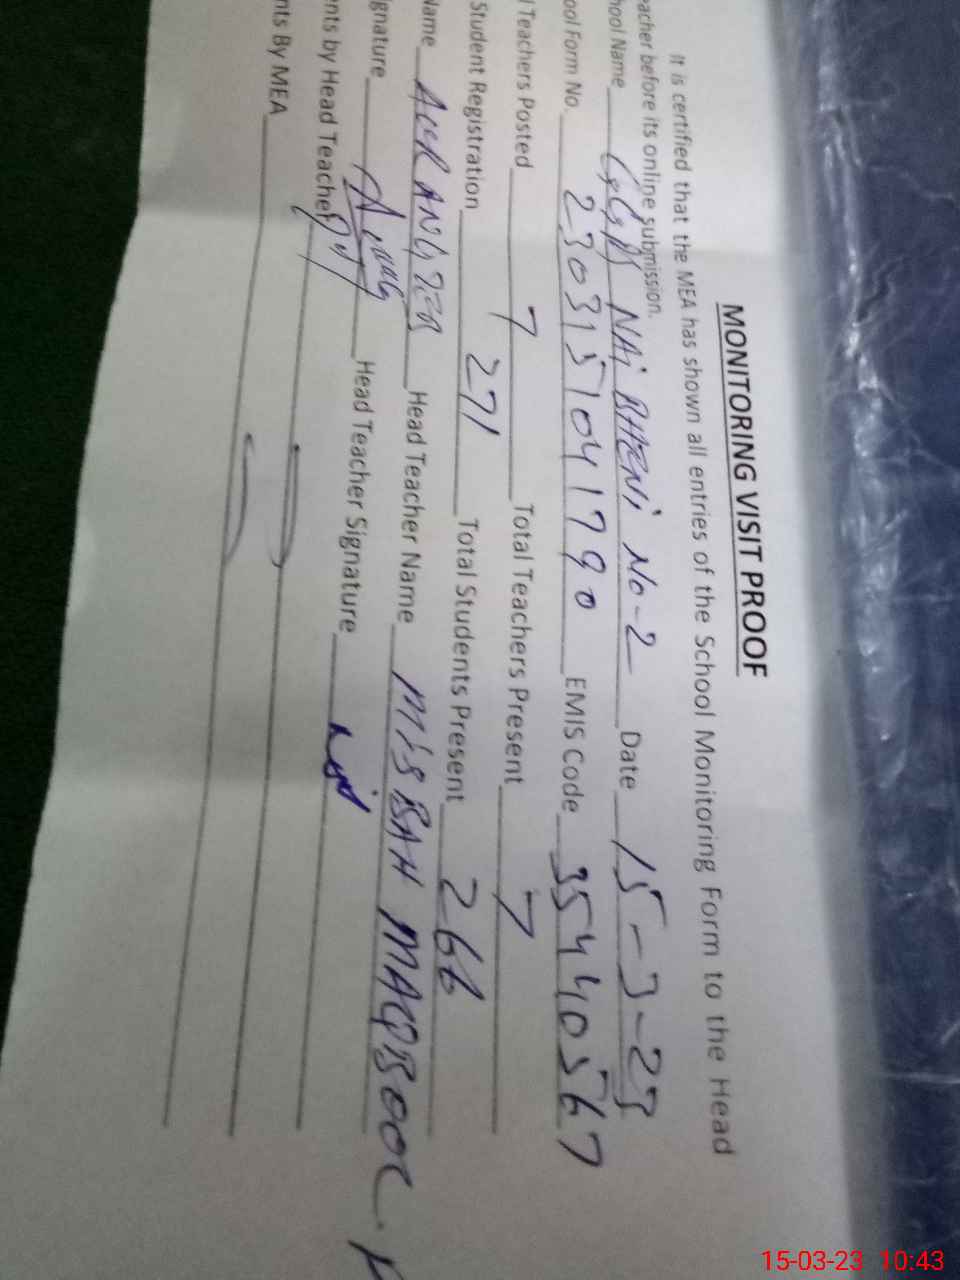 MONITORING VISIT PROOF
It is certified that the MEA has shown all entries of the School Monitoring Form to the Head
eacher before its online submission.
hool Name GGPS NAi BHENi No-2 Date 15-3-23
ool Form No. 2303151041790 EMIS Code 35440567
l Teachers Posted 7 Total Teachers Present 7
Student Registration 271 Total Students Present 266
Name AURANGZEB Head Teacher Name MISBAH MAQBOOL
ignature Head Teacher Signature
nts by Head Teacher
nts By MEA
15-03-23 10:43